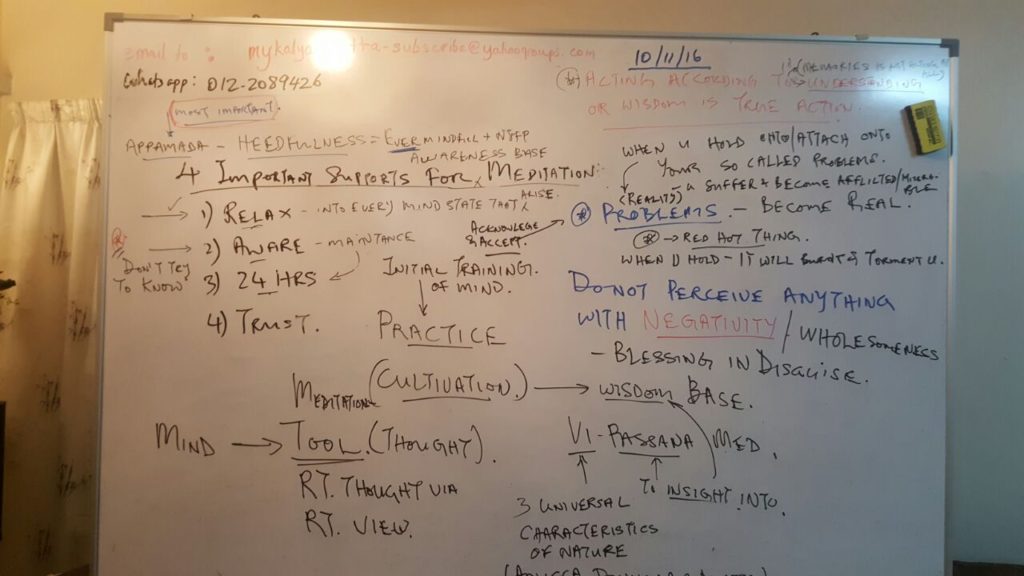 Email to :
subscribe@yahoogroups.com
Whatsapp: 012-2089426
10/11/16
MOST IMPORTANT
ACTING ACCORDING TO UNDERSTANDING
OR WISDOM IS TRUE ACTION.
APPAMADA - HEEDFULLNESS = EVER MINDFUL +
AWARENESS BASE
4 IMPORTANT SUPPORTS FOR MEDITATION:-
1) RELAX - INTO EVERY MIND STATE THAT ARISE.
2) AWARE - MAINTANCE
DON'T TRY
TO KNOW
3) 24 HRS
4) TRUST.
ACKNOWLEGE
& ACCEPT.
INITIAL TRAINING.
OF MIND.
PRACTICE
WHEN U HOLD ONTO/ATTACH ONTO
YOUR SO CALLED PROBLEMS.
(REALITY) U SUFFER & BECOME AFFLICTED/MISERABLE
PROBLEMS. - BECOME REAL.
→ RED HOT THING.
WHEN U HOLD - IT WILL BURN & TORMENT U.
DO NOT PERCEIVE ANYTHING
WITH NEGATIVITY / WHOLESOMENESS
- BLESSING IN DISGUISE.
MEDITATION (CULTIVATION) → WISDOM BASE.
MIND → TOOL. (THOUGHT).
RT. THOUGHT VIA
RT. VIEW.
VI - PASSANA MED.
TO INSIGHT INTO.
3 UNIVERSAL
CHARACTERISTICS
OF NATURE